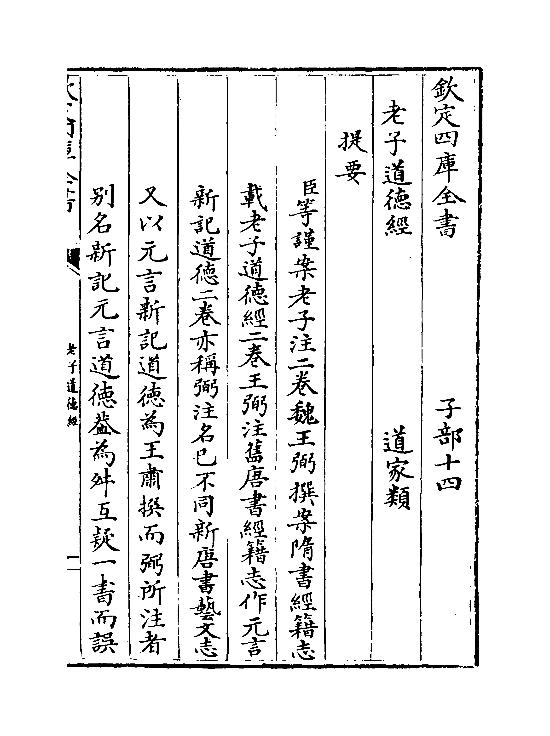 欽定四庫全書 子部十四
老子道德經 道家類
提要
臣等謹案老子注二卷魏王弼撰案隋書經籍志
載老子道德經二卷王弼注舊唐書經籍志作元言
新記道德二卷亦稱弼注名已不同新唐書藝文志
又以元言新記道德為王肅撰而弼所注者
别名新記元言道德益為舛互疑一書而誤
老子道德經
一